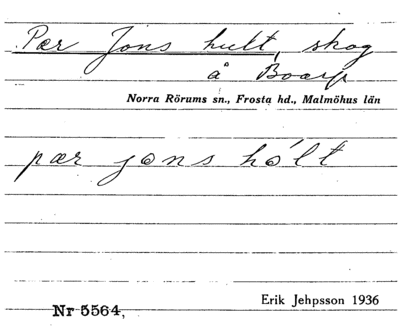 Pær Jons hult, skog
å Boarp
Norra Rörums sn., Frosta hd., Malmöhus län
pær jons hólt
Erik Jehpsson 1936
Nr 5564,